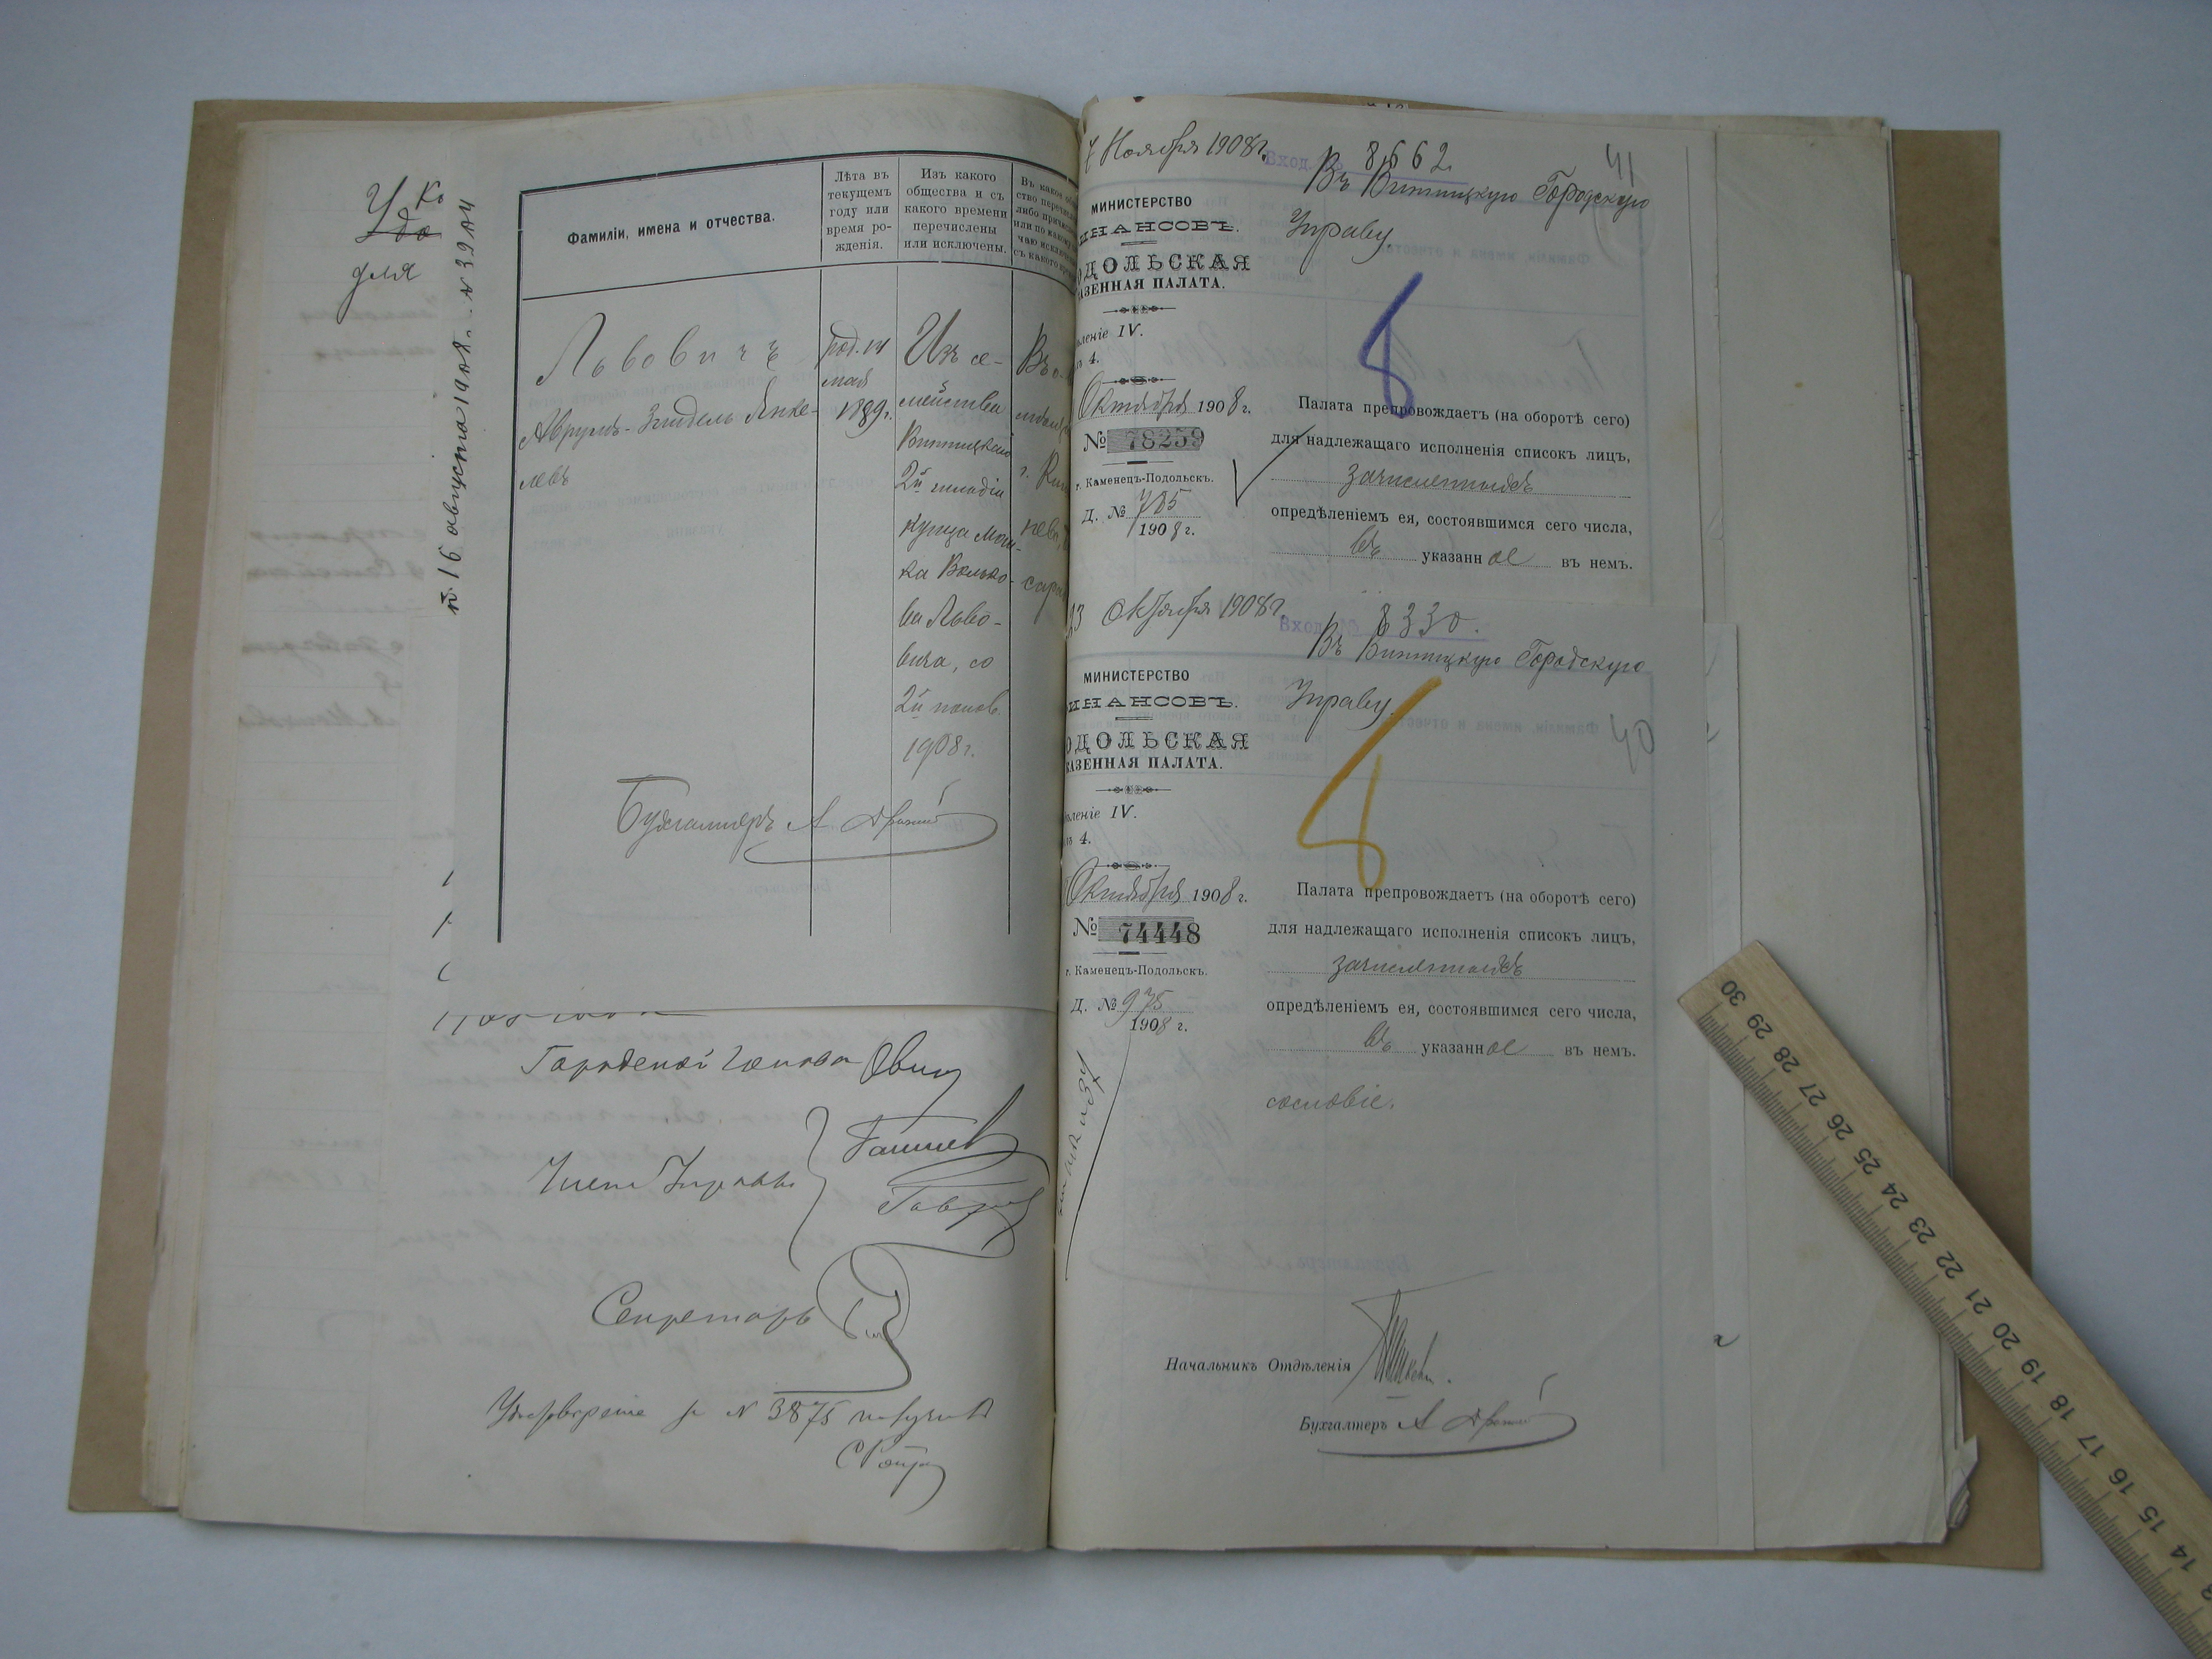 У Ко
Удо
для
16 августа 1908 г. № 3924
Фамиліи, имена и отчества.
Лѣта въ
текущемъ
году или
время ро-
жденія.
Изъ какого
общества и съ
какого времени
перечислены
или исключены.
Львовичъ
Аврумъ-Зейдель Янке-
левъ
род. 14
мая
1889 г.
Изъ се-
мейства
Винницкаго
2й гильдіи
купца Мош-
ка Волько-
ва Льво-
вича, со
2й полов.
1908 г.
Въ о-
г. Ки
Бухгалтеръ А
Городской Голова
Члены Управы
Секретарь
Удостовѣреніе за № 3875 получилъ
7 Ноября 1908 г.
Вход. № 8662.
41
Въ Винницкую Городскую
Управу.
МИНИСТЕРСТВО
ИНАНСОВЪ.
ОДОЛЬСКАЯ
АЗЕННАЯ ПАЛАТА.
леніе IV.
ъ 4.
Октября 1908 г.
№ 78259
г. Каменецъ-Подольскъ.
Д. № 785
1908 г.
8
Палата препровождаетъ (на оборотѣ сего)
для надлежащаго исполненія списокъ лицъ,
зачисленныхъ
опредѣленіемъ ея, состоявшимся сего числа,
въ указанное въ немъ.
23 Октября 1908 г.
Вход. № 8330.
Въ Винницкую Городскую
Управу.
40
МИНИСТЕРСТВО
ИНАНСОВЪ.
ОДОЛЬСКАЯ
АЗЕННАЯ ПАЛАТА.
леніе IV.
ъ 4.
Октября 1908 г.
№ 74448
г. Каменецъ-Подольскъ.
Д. № 975
1908 г.
8
Палата препровождаетъ (на оборотѣ сего)
для надлежащаго исполненія списокъ лицъ,
зачисленныхъ
опредѣленіемъ ея, состоявшимся сего числа,
въ указанное въ немъ.
сословіе.
Начальникъ Отдѣленія
Бухгалтеръ А
30 29 28 27 26 25 24 23 22 21 20 19 18 17 16 15 14